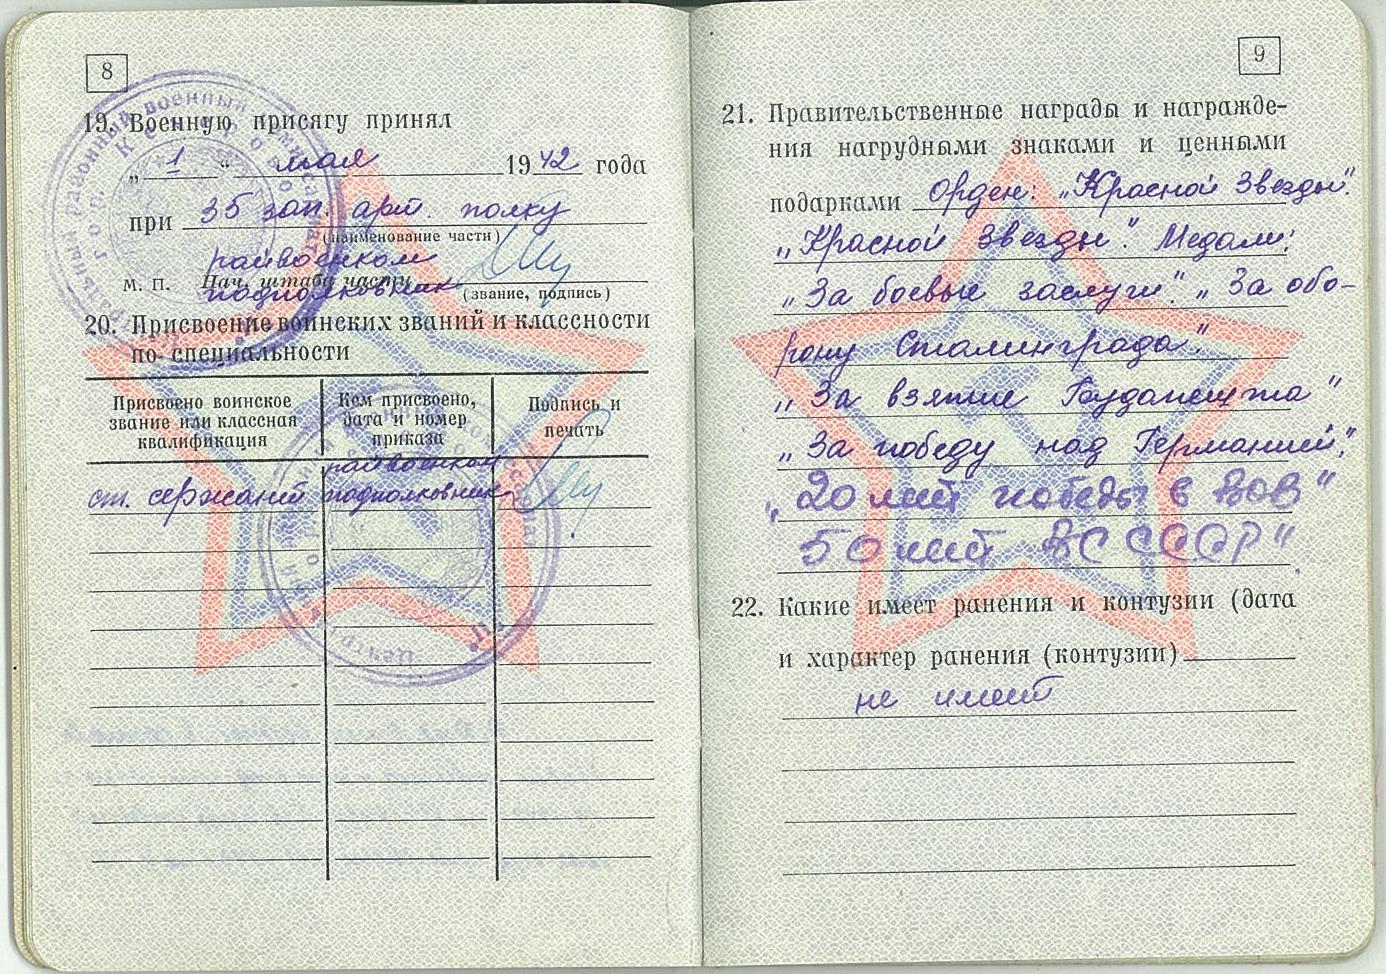 8
19. Военную присягу принял
„ 1 “ мая 1942 года
при 35 зап. арт. полку
(наименование части)
райвоенком
М. П. Нач. штаба части
подполковник (звание, подпись)
20. Присвоение воинских званий и классности
по специальности
Присвоено воинское звание или классная квалификация
Кем присвоено, дата и номер приказа
Подпись и печать
райвоенком
ст. сержант подполковник
9
21. Правительственные награды и награжде-
ния нагрудными знаками и ценными
подарками Орден: „Красной Звезды".
„Красной Звезды". Медали:
„За боевые заслуги". „За обо-
рону Сталинграда".
„За взятие Будапешта"
„За победу над Германией".
„20 лет победы в ВОВ"
50 лет ВС СССР"
22. Какие имеет ранения и контузии (дата
и характер ранения (контузии)
не имеет